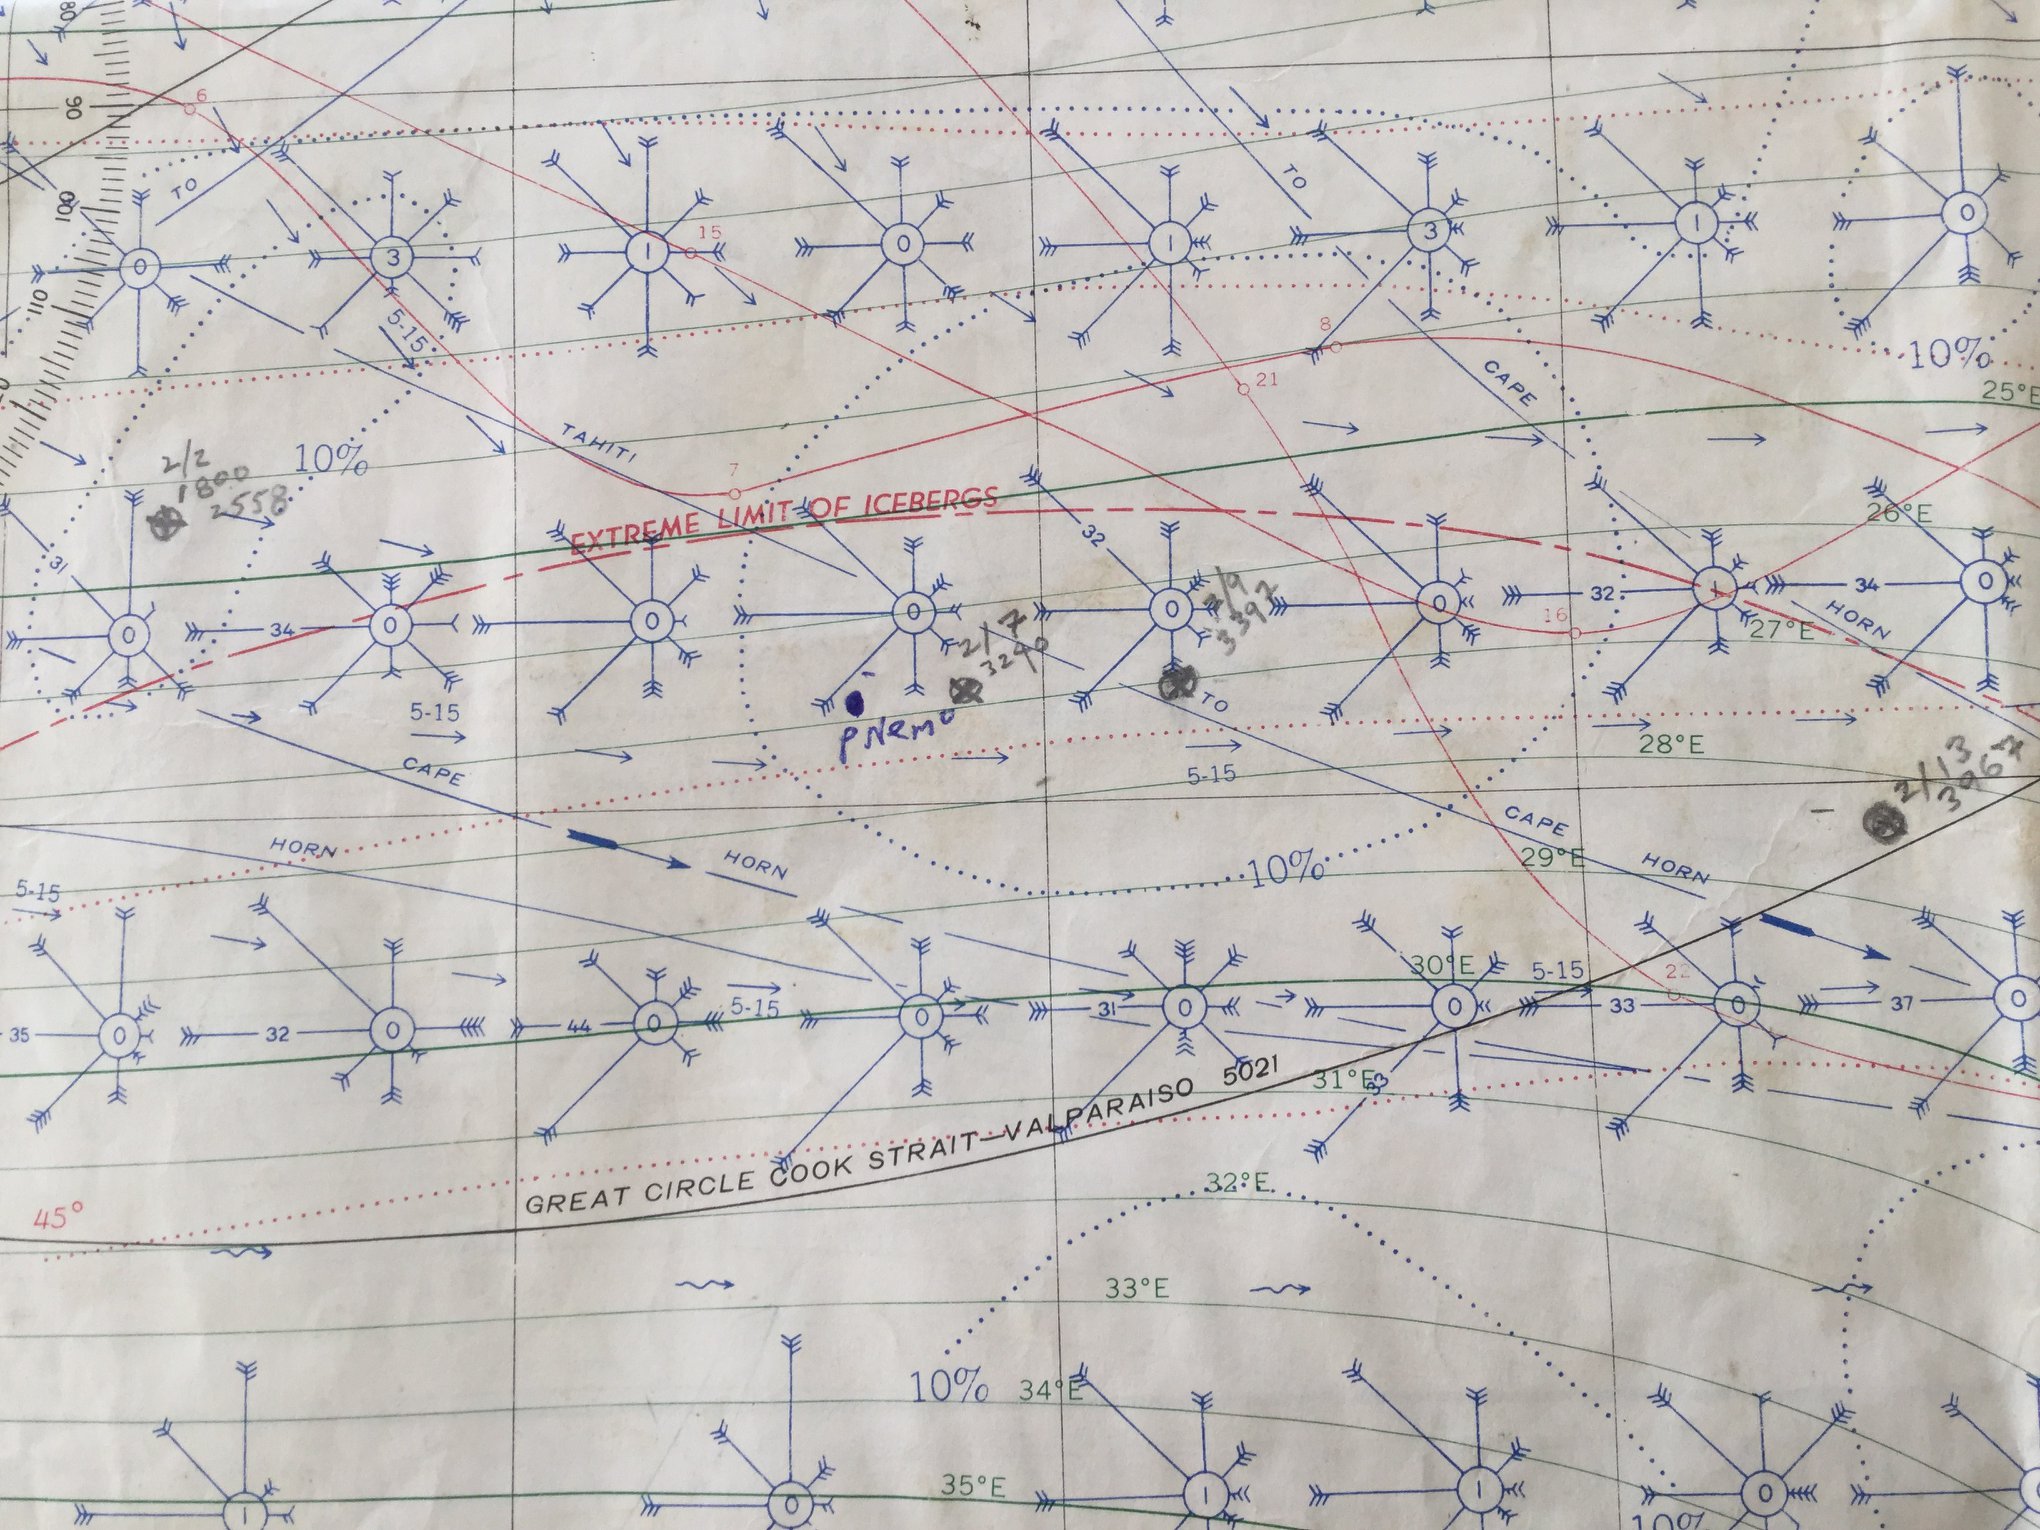 80
90
6
100
TO
TO
3
1
15
0
1
3
1
0
0
110
5-15
8
10%
21
CAPE
25°E
TAHITI
10%
2/2
1800
2558
7
EXTREME LIMIT OF ICEBERGS
26°E
31
32
34
32
34
0
0
0
0
0
0
1
0
16
27°E
HORN
2/7
3240
2/9
3397
5-15
pNemo
TO
28°E
5-15
2/13
3967
CAPE
HORN
HORN
CAPE
HORN
29°E
10%
5-15
30°E
5-15
22
35
0
32
0
44
0
5-15
0
31
0
0
33
0
37
0
GREAT CIRCLE COOK STRAIT—VALPARAISO 5021
31°E
33
32°E
45°
33°E
10%
34°E
35°E
1
0
1
1
0
10%